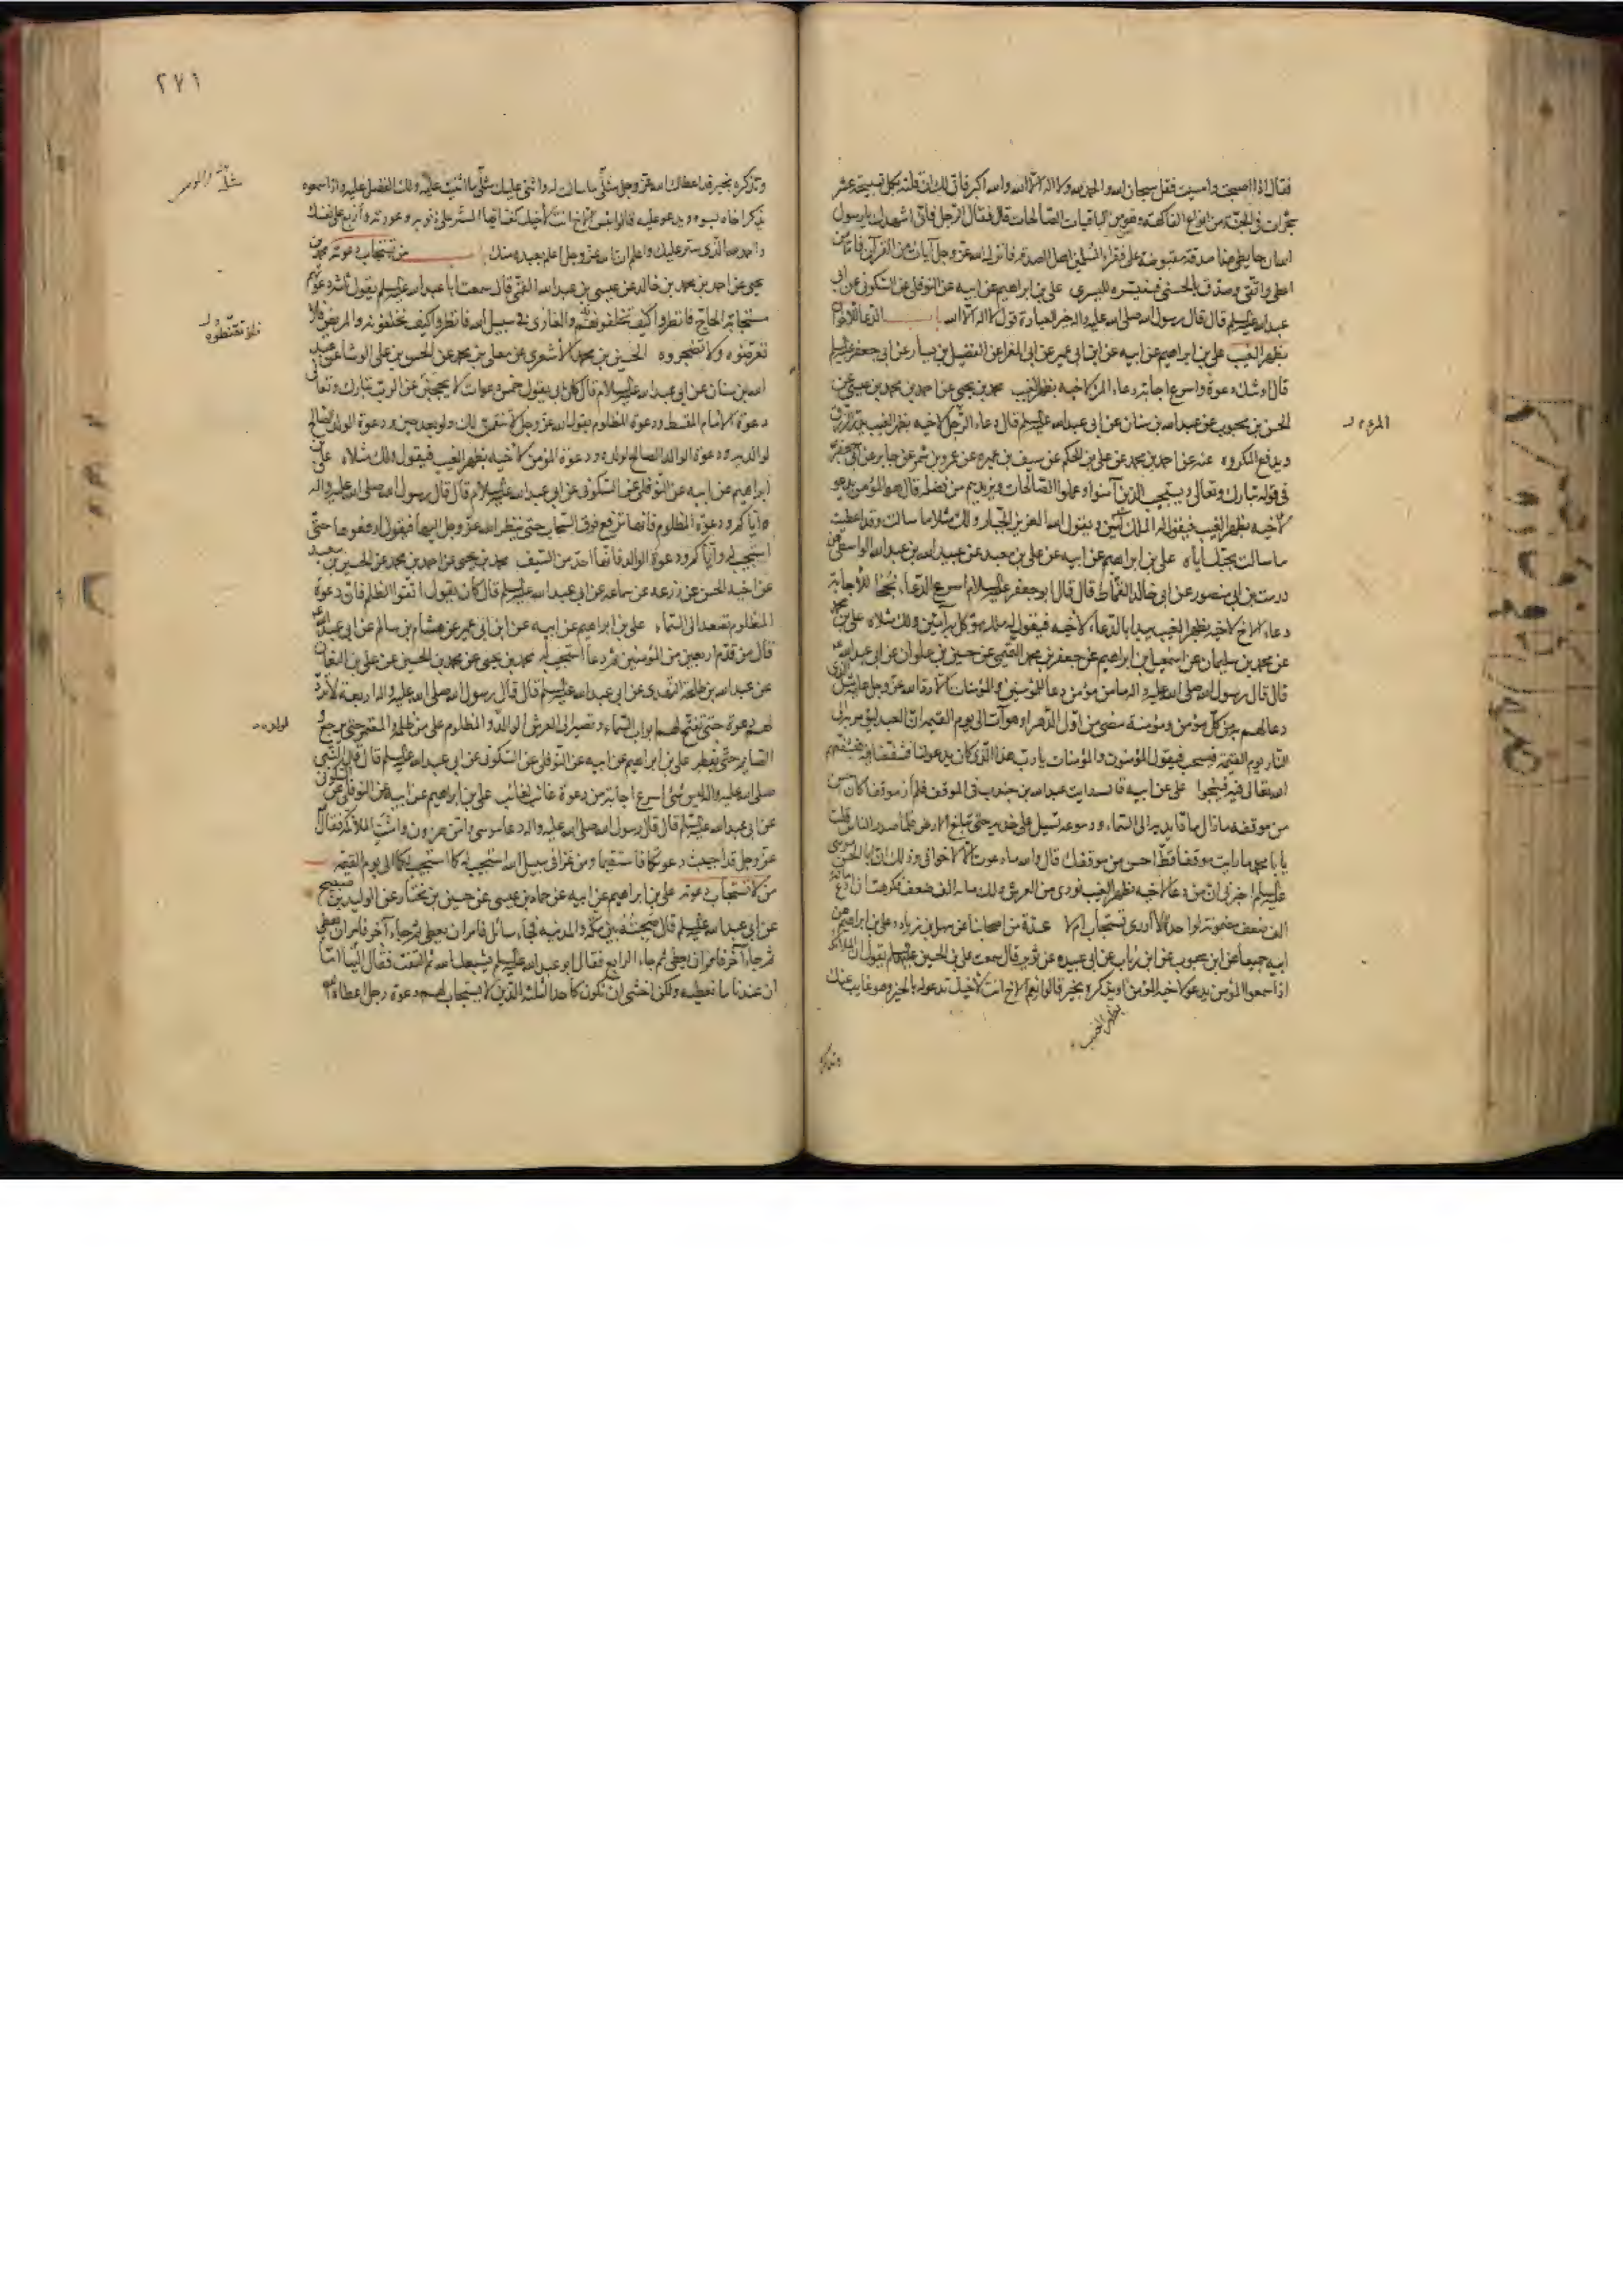 فقال اذا اصبحت وامسيت فقل سبحان الله والحمد لله ولا اله الا الله والله اكبر فان لك ان قلته بكل تسبيحة عشر
شجرات في الجنة من انواع الفاكهة وهو من الباقيات الصالحات قال فقال الرجل فاني اشهدك يا رسول
الله ان حايطي هذا صدقة مقبوضة على فقراء المسلمين اهل الصدقة فانزل الله عز وجل آيات من القرآن فاما من
اعطى واتقى وصدق بالحسنى فسنيسره لليسرى علي بن ابراهيم عن ابيه عن النوفلي عن السكوني عن ابي
عبد الله عليه السلم قال قال رسول الله صلى الله عليه واله خير العبادة قول لا اله الا الله باب الدعاء للاخوان
بظهر الغيب علي بن ابراهيم عن ابيه عن ابن ابي عمير عن ابي المغرا عن الفضيل بن يسار عن ابي جعفر عليه السلم
قال اوشك دعوة واسرع اجابة دعاء المرء لاخيه بظهر الغيب محمد بن يحيى عن احمد بن محمد بن عيسى عن
الحسن بن محبوب عن عبد الله بن سنان عن ابي عبد الله عليه السلم قال دعاء الرجل لاخيه بظهر الغيب يدر الرزق
ويدفع المكروه عنه عن احمد بن محمد عن علي بن الحكم عن سيف بن عميره عن عمرو بن شمر عن جابر عن ابي جعفر
في قوله تبارك وتعالى ويستجيب الذين آمنوا وعملوا الصالحات ويزيدهم من فضله قال هو المؤمن يدعو
لاخيه بظهر الغيب فيقول له الملك آمين ويقول الله العزيز الجبار ولك مثلا ما سالت وقد اعطيت
ما سالت بحبك اياه علي بن ابراهيم عن ابيه عن علي بن معبد عن عبيد الله بن عبد الله الواسطي عن
درست بن ابي منصور عن ابي خالد القماط قال قال ابو جعفر عليه السلام اسرع الدعاء نجحا للاجابة
دعاء الاخ لاخيه بظهر الغيب يبدا بالدعاء لاخيه فيقول له ملك موكل به آمين ولك مثلاه علي بن محمد
عن محمد بن سليمان عن اسمعيل بن ابراهيم عن جعفر بن محمد التميمي عن حسين بن علوان عن ابي عبد الله
قال قال رسول الله صلى الله عليه واله ما من مؤمن دعا للمؤمنين والمؤمنات الا رد الله عز وجل عليه مثل الذي
دعا لهم به من كل مؤمن ومؤمنة مضى من اول الدهر او هو آت الى يوم القيمة ان العبد ليؤمر به الى
النار يوم القيمة فيسحب فيقول المؤمنون والمؤمنات يا رب هذا الذي كان يدعو لنا فشفعنا فيه فيشفعهم
الله تعالى فيه فينجوا علي عن ابيه قال رايت عبد الله بن جندب في الموقف فلم ار موقفا كان احسن
من موقفه ما زال مادا يديه الى السماء ودموعه تسيل على خديه حتى تبلغ الارض فلما صدر الناس قلت
يا با محمد ما رايت موقفا قط احسن من موقفك قال والله ما دعوت الا لاخواني وذلك ان ابا الحسن موسى
عليه السلم اخبرني ان من دعا لاخيه بظهر الغيب نودي من العرش ولك مائة الف ضعف فكرهت ان ادع مائة
الف ضعف مضمونة لواحدة لا ادري تستجاب ام لا عدة من اصحابنا عن سهل بن زياد وعلي بن ابراهيم عن
ابيه جميعا عن ابن محبوب عن ابن رئاب عن ابي عبيده عن ثوير قال سمعت علي بن الحسين عليهما السلم يقول ان الملائكة
اذا سمعوا المؤمن يدعو لاخيه المؤمن او يذكره بخير قالوا نعم الاخ انت لاخيك تدعو له بالخير وهو غايب عنك
بظهر الغيب
وتذكره
المرء
٢٧١
وتذكره بخير قد اعطاك الله عز وجل مثلي ما سالت له واثنى عليك مثلي ما اثنيت عليه ولك الفضل عليه واذا سمعوه
يذكر اخاه بسوء ويدعو عليه قالوا بئس الاخ انت لاخيك كف ايها المستر على ذنوبه وعورته واربع على نفسك
واحمد الله الذي ستر عليك واعلم ان الله عز وجل اعلم بعبده منك باب من تستجاب دعوته محمد بن
يحيى عن احمد بن محمد بن خالد عن عيسى بن عبد الله القمي قال سمعت ابا عبد الله عليه السلم يقول ثلثة دعوتهم
مستجابة الحاج فانظروا كيف تخلفونهم والغازي في سبيل الله فانظروا كيف تخلفونه والمريض فلا
تعرضوه ولا تضجروه الحسين بن محمد الاشعري عن معلى بن محمد عن الحسن بن علي الوشاء عن عبد
الله بن سنان عن ابي عبد الله عليه السلام قال كان ابي يقول خمس دعوات لا يحجبن عن الرب تبارك وتعالى
دعوة الامام المقسط ودعوة المظلوم يقول الله عز وجل لانتقمن لك ولو بعد حين ودعوة الولد الصالح
لوالديه ودعوة الوالد الصالح لولده ودعوة المؤمن لاخيه بظهر الغيب فيقول ولك مثلاه علي بن
ابراهيم عن ابيه عن النوفلي عن السكوني عن ابي عبد الله عليه السلام قال قال رسول الله صلى الله عليه واله
اياكم ودعوة المظلوم فانها ترفع فوق السحاب حتى ينظر الله عز وجل اليها فيقول ارفعوها حتى
استجيب له واياكم ودعوة الوالد فانها احد من السيف محمد بن يحيى عن احمد بن محمد عن الحسين بن سعيد
عن اخيه الحسن عن زرعه عن سماعه عن ابي عبد الله عليه السلم قال كان يقول اتقوا الظلم فان دعوة
المظلوم تصعد الى السماء علي بن ابراهيم عن ابيه عن ابن ابي عمير عن هشام بن سالم عن ابي عبد الله
قال من قدم اربعين من المؤمنين ثم دعا استجيب له محمد بن يحيى عن محمد بن الحسين عن علي بن النعمان
عن عبد الله بن طلحة النهدي عن ابي عبد الله عليه السلم قال قال رسول الله صلى الله عليه واله اربعة لا ترد
لهم دعوة حتى تفتح لهم ابواب السماء وتصير الى العرش الوالد والمظلوم على من ظلمه والمعتمر حتى يرجع و
الصايم حتى يفطر علي بن ابراهيم عن ابيه عن النوفلي عن السكوني عن ابي عبد الله عليه السلم قال قال النبي
صلى الله عليه واله ليس شئ اسرع اجابة من دعوة غائب لغائب علي بن ابراهيم عن ابيه عن النوفلي عن السكوني
عن ابي عبد الله عليه السلم قال قال رسول الله صلى الله عليه واله دعا موسى وامن هرون وامنت الملائكة فقال
عز وجل قد اجيبت دعوتكما فاستقيما ومن غزا في سبيل الله استجيب له كما استجيب لكما الى يوم القيمة
من لا تستجاب دعوته علي بن ابراهيم عن ابيه عن حماد بن عيسى عن حسين بن مختار عن الوليد بن صبيح
عن ابي عبد الله عليه السلم قال صحبته بين مكة والمدينة فجاء سائل فامر ان يعطى ثم جاء آخر فامر ان يعطى
ثم جاء آخر فامر ان يعطى ثم جاء الرابع فقال ابو عبد الله عليه السلم يشبعك الله ثم التفت فقال الينا اما
ان عندنا ما نعطيه ولكن اخشى ان نكون كاحد الثلثة الذين لا يستجاب لهم دعوة رجل اعطاه الله
لولده